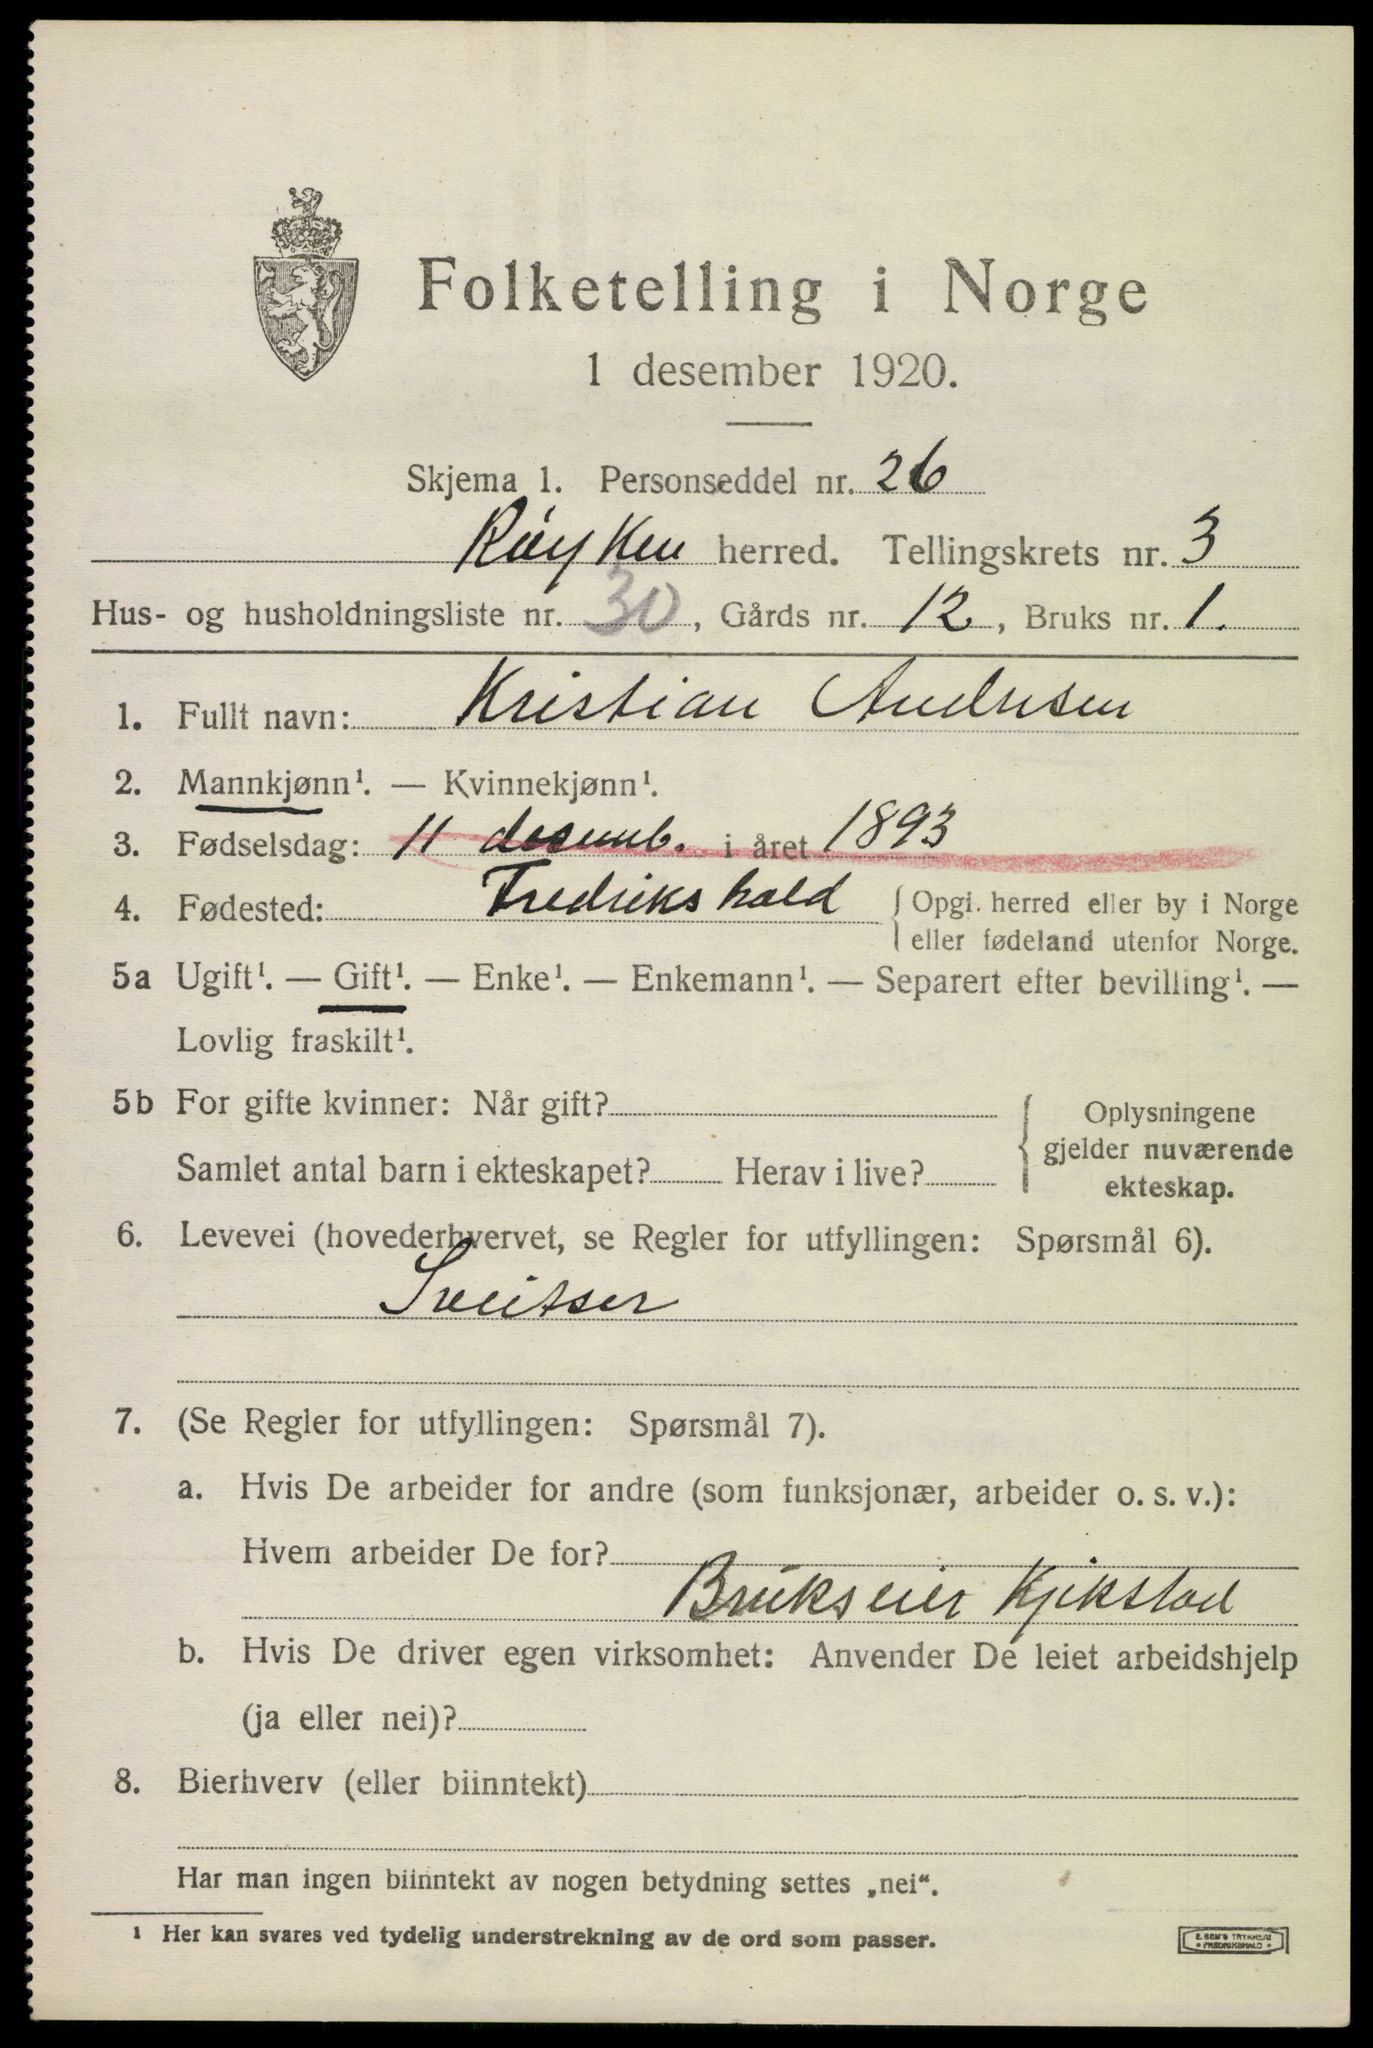 Folketelling i Norge
1 desember 1920.
Skjema 1. Personseddel nr. 26
Røyken herred. Tellingskrets nr. 3
Hus- og husholdningsliste nr. 30, Gårds nr. 12, Bruks nr. 1.
1. Fullt navn: Kristian Andresen
2. Mannkjønn¹. — Kvinnekjønn¹.
3. Fødselsdag: 11 desemb. i året 1893
4. Fødested: Fredrikshald { Opgi. herred eller by i Norge
eller fødeland utenfor Norge.
5a Ugift¹. — Gift¹. — Enke¹. — Enkemann¹. — Separert efter bevilling¹. —
Lovlig fraskilt¹.
5b For gifte kvinner: Når gift?
Samlet antal barn i ekteskapet? Herav i live?
{ Oplysningene
gjelder nuværende
ekteskap.
6. Levevei (hovederhvervet, se Regler for utfyllingen: Spørsmål 6).
Sveitser
7. (Se Regler for utfyllingen: Spørsmål 7).
a. Hvis De arbeider for andre (som funksjonær, arbeider o. s. v.):
Hvem arbeider De for?
Brukseier Kjikstad
b. Hvis De driver egen virksomhet: Anvender De leiet arbeidshjelp
(ja eller nei)?
8. Bierhverv (eller biinntekt)
Har man ingen biinntekt av nogen betydning settes „nei“.
¹ Her kan svares ved tydelig understrekning av de ord som passer.
E. SEM'S TRYKKERI
• FREDRIKSHALD •